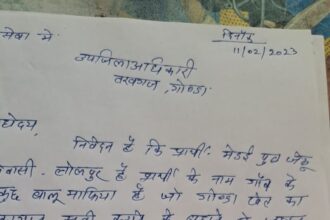 सेवा में
दिनांक
11/02/2023
उपजिलाअधिकारी
तरबगंज, गोण्डा
होदय,
निवेदन है कि प्रार्थी मेडई पुत्र जेठू
वासी लोलपुर है प्रार्थी के नाम गाँव के
कुछ बालू माफिया है जो गोण्डा खेत का